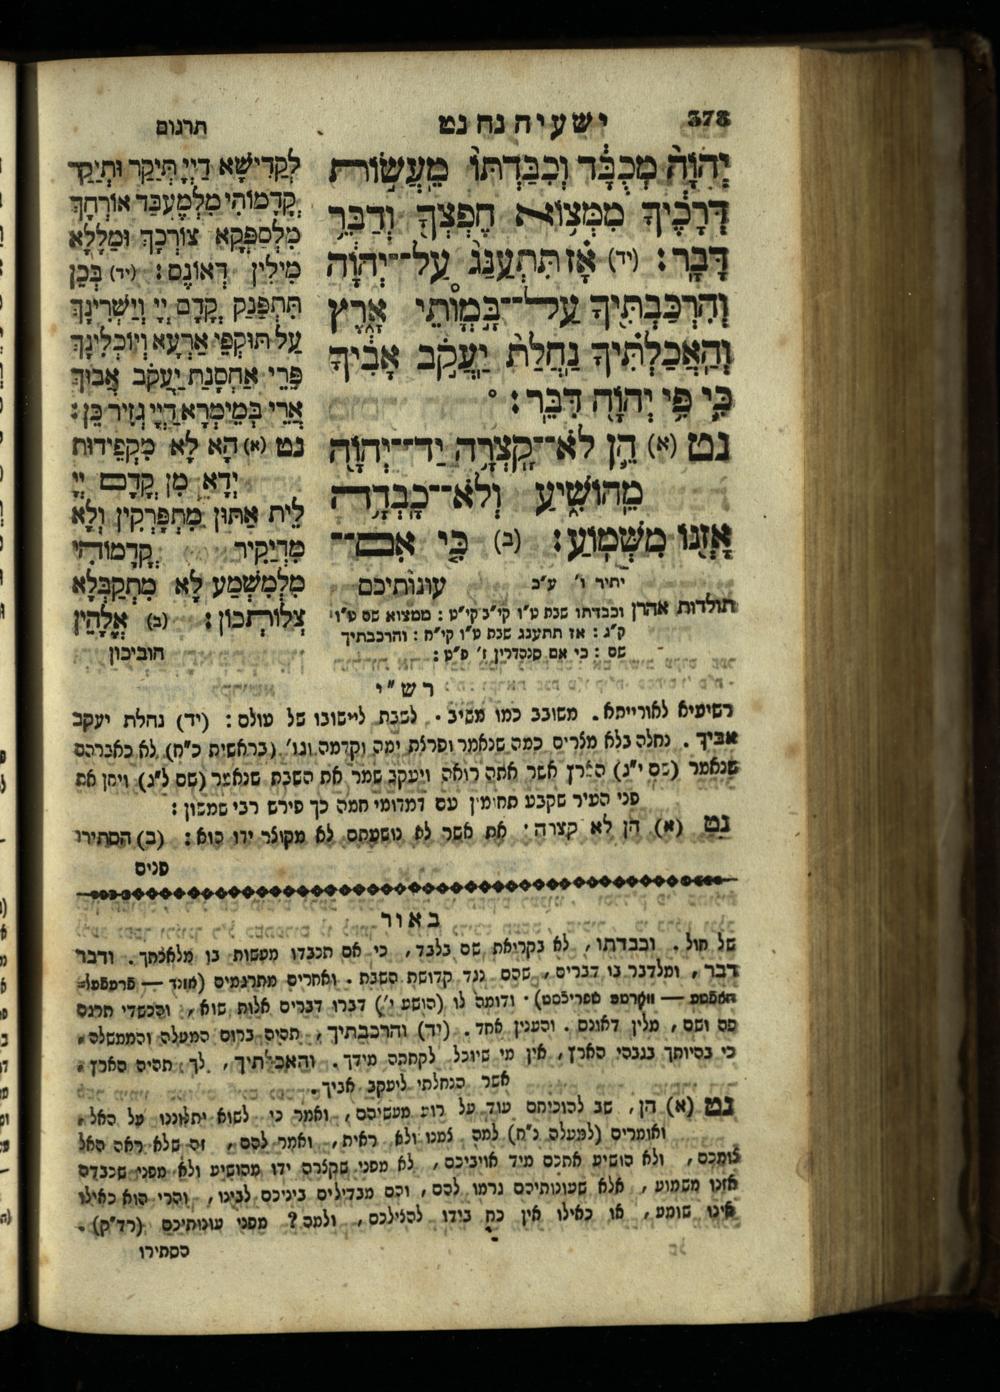 378
ישעיה נח נט
תרגום
יְהוָה֙ מְכֻבָּ֔ד וְכִבַּדְתּוֹ֙ מֵֽעֲשׂ֣וֹת
דְּרָכֶ֔יךָ מִמְּצ֥וֹא חֶפְצְךָ֖ וְדַבֵּ֥ר
דָּבָֽר׃ (יד) אָ֗ז תִּתְעַנַּג֙ עַל־יְהוָ֔ה
וְהִרְכַּבְתִּ֖יךָ עַל־בָּ֣מֳותֵי אָ֑רֶץ
וְהַֽאֲכַלְתִּ֗יךָ נַֽחֲלַת֙ יַֽעֲקֹ֣ב אָבִ֔יךָ
כִּ֛י פִּ֥י יְהוָ֖ה דִּבֵּֽר׃ °
נט (א) הֵ֛ן לֹא־קָֽצְרָ֥ה יַד־יְהוָ֖ה
מֵֽהוֹשִׁ֑יעַ וְלֹא־כָֽבְדָ֥ה
אָזְנ֖וֹ מִשְּׁמֽוֹעַ׃ (ב) כִּ֤י אִם־
עונותיכם
יתיר ו' ע"ב
לְקַדִישָׁא דַיְיָ תְּיַקַר וּתְיַקֵר
קֳדָמוֹהִי מִלְמֶעְבַּד אוֹרְחָךְ
מִלְסַפְּקָא צוֹרְכָךְ וּמַלָלָא
מִילִין דְאוֹנֶס׃ (יד) בְּכֵן
תִּתְפַּנַק קֳדָם יְיָ וְיַשְׁרִינָךְ
עַל תּוּקְפֵי אַרְעָא וְיוֹכְלִינָךְ
פֵּרֵי אַחְסָנַת יַעֲקֹב אֲבוּךְ
אֲרֵי בְּמֵימְרָא דַיְיָ גְזִיר כֵּן׃
נט (א) הָא לָא מִקְפֵידוּת
יְדָא מִן קֳדָם יְיָ
לֵית אַתּוּן מִתְפָּרְקִין וְלָא
מִדְיַקִיר קֳדָמוֹהִי
מִלְמִשְׁמַע לָא מִתְקַבְּלָא
צְלוֹתְכוֹן׃ (ב) אֱלָהֵין
חוביכון
תולדות אהרן וכבדתו שבת ט"ו קי"ג קי"ט : ממצוא שם ט"ו
ק"נ : אז תתענג שבת ט"ו קי"ח : והרכבתיך
שם : כי אם סנהדרין ז' פ"ט :
רש"י
רשיעיא לאורייתא. משובב כמו משיב. לשבת ליישובו של עולם : (יד) נחלת יעקב
אביך. נחלה בלא מצרים כמה שנאמר ופרצת ימה וקדמה וגו', (בראשית כ"ח) לא כאברהם
שנאמר (שם י"ג) הארץ אשר אתה רואה ויעקב שמר את השבת שנאמר (שם ל"ג) ויחן את
פני העיר שקבע תחומין עם דמדומי חמה כך פירש רבי שמעון :
נט (א) הן לא קצרה. את אשר לא נושעתם לא מקוצר ידו הוא : (ב) הסתירו
פנים
באור
של חול. וכבדתו, לא בקריאת שם בלבד, כי אם תכבדו מעשות בו מלאכתך. ודבר
דבר, ומלדבר בו דברים, שהם נגד קדושת השבת. ואחרים מתרגמים
ודומה לו (הושע י') דברו דברים אלות שוא, והכשדי תרגם
פה ושם, מלין דאונס. והענין אחד. (יד) והרכבתיך, תהיה ברום המעלה והממשלה,
כי בהיותך בגבהי הארץ, אין מי שיוכל לקחתה מידך. והאכלתיך, לך תהיה הארץ,
אשר הנחלתי ליעקב אביך.
נט (א) הן, שב להוכיחם עוד על רוע מעשיהם, ואמר כי לשוא יתלוננו על האל,
ואומרים (למעלה נ"ח) למה צמנו ולא ראית, ואמר להם, זה שלא ראה האל
צומכם, ולא הושיע אתכם מיד אויביכם, לא מפני שקצרה ידו מהושיע ולא מפני שכבדה
אזנו משמוע, אלא שעונותיכם גרמו להם, והם מבדילים ביניכם לבינו, והרי הוא כאילו
אינו שומע, או כאילו אין כח בידו להצילכם, ולמה? מפני עונותיכם (רד"ק).
הסתירו